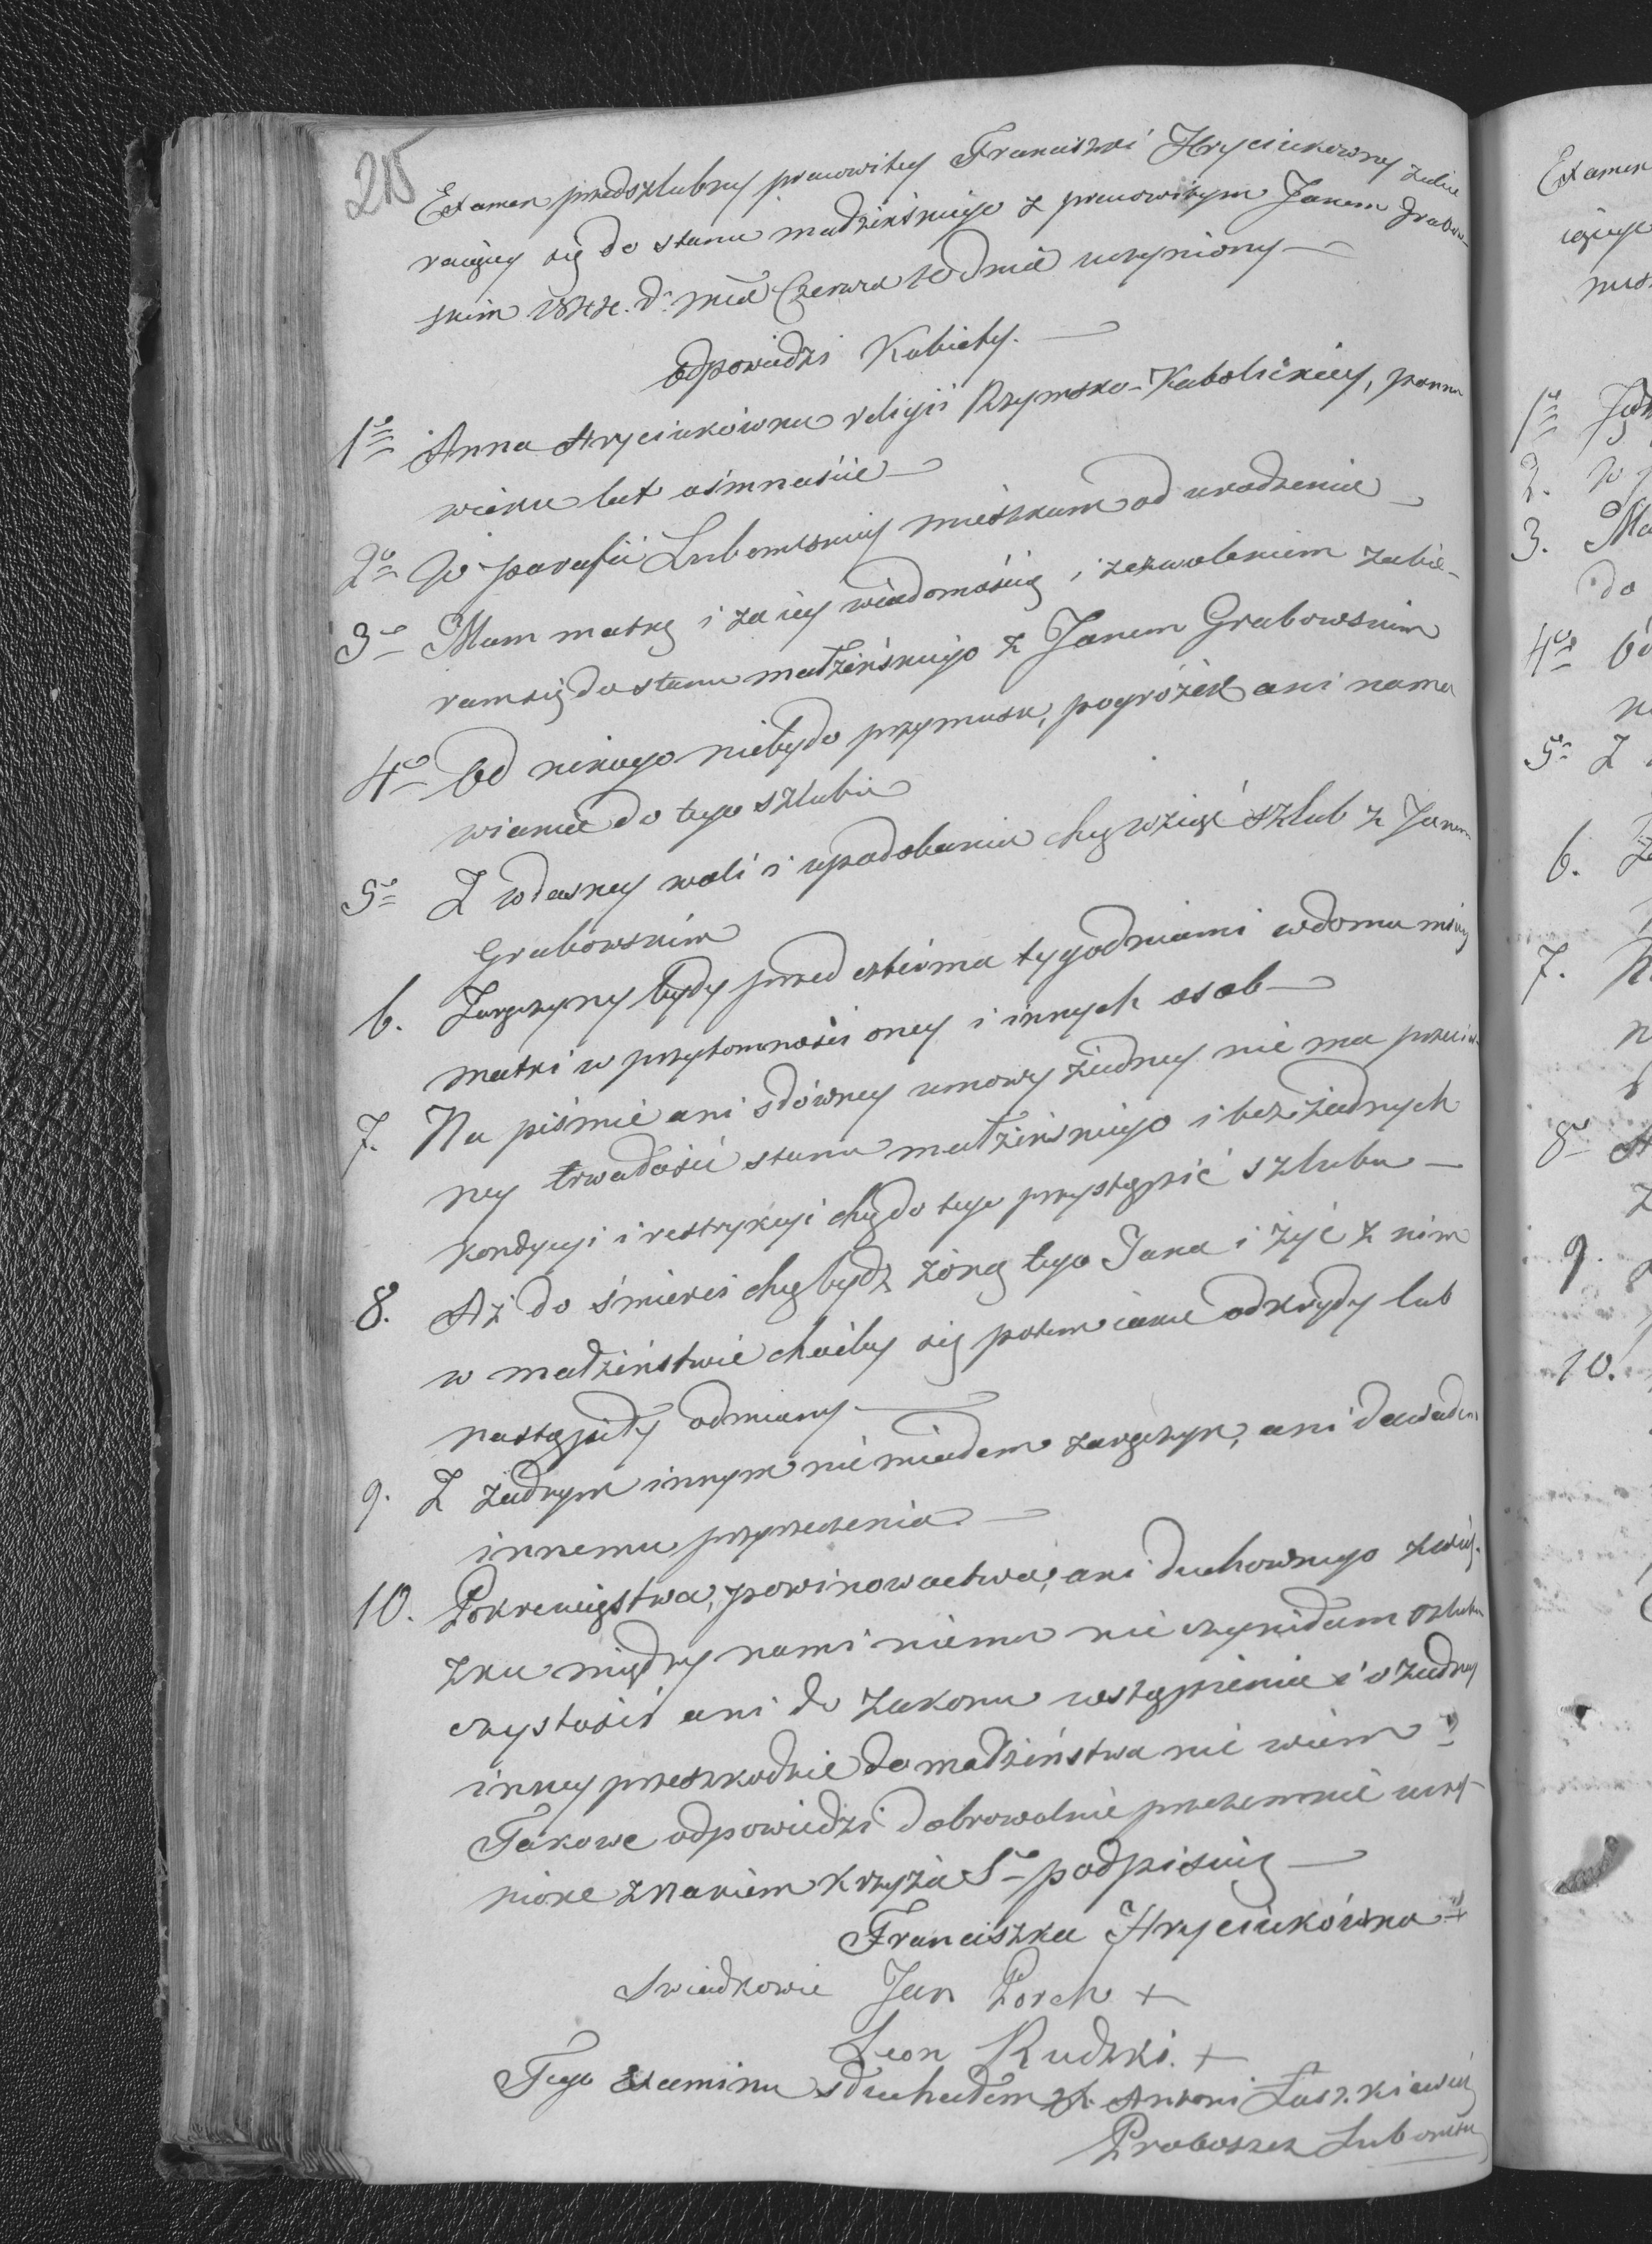 215
Examen przedszlubny pracowitey Franciszki Hryciukowny zabie
raiącey się do stanu małżeńskiego z pracowitym Janem Grabow-
skim 1844. Ru mca Czerwca 10 dnia uczyniony —
Odpowiedzi Kobiéty. —
1o Anna Hryciukówna religii Rzymsko-Katolickiey, panna
wieku lat ośmnaście —
2o W parafii Lubomlskiey mieszkam od urodzenia —
3o Mam matkę i za iey wiadomością i zezwoleniem zabie-
ram się do stanu małżeńskiego z Janem Grabowskim
4o Od nikogo niebyło przymusu, pogróżek ani nama
wiania do tego szlubu
5o Z własney woli i upodobania chcę wziąść szlub z Janem
Grabowskim
6. Zaręczyny były przed czterma tygodniami w domu moiey
matki w przytomności oney i innych osob —
7. Na piśmie ani słówney umowy żadney nie ma przeciw-
ney trwałości stanu małżeńskiego i bez żadnych
kondycyi i restrykcyi chcę do tego przystąpić szlubu —
8. Aż do śmierci chcę bydź żoną tego Jana i żyć z nim
w małżeństwie choćby się potem iakie odkryły lub
nastąpiły odmiany —
9. Z żadnym innym nie miałam zaręczyn, ani dawałam
innemu przyrzeczenia —
10. Pokrewieństwa, powinowactwa, ani duchownego związ-
zku między nami niema nie czyniłam szlubu
czystości ani do zakonu wstąpienia i o żadney
inney przeszkodzie do małżeństwa nie wiem —
Takowe odpowiedzi dobrowolnie przezemnie uczy-
nione znakiem Krzyża So podpisuię —
Franciszka Hryciukówna +
Swiadkowie Jan Porch +
Leon Rudzki. +
Tego Examinu słuchałem X. Antoni Laszkiewicz
Proboszcz Luboml